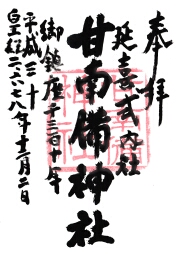 奉拝
延喜式内社
甘南備神社
御鎮座千三百十年
平成三十
皇紀二六七八年十二月二日